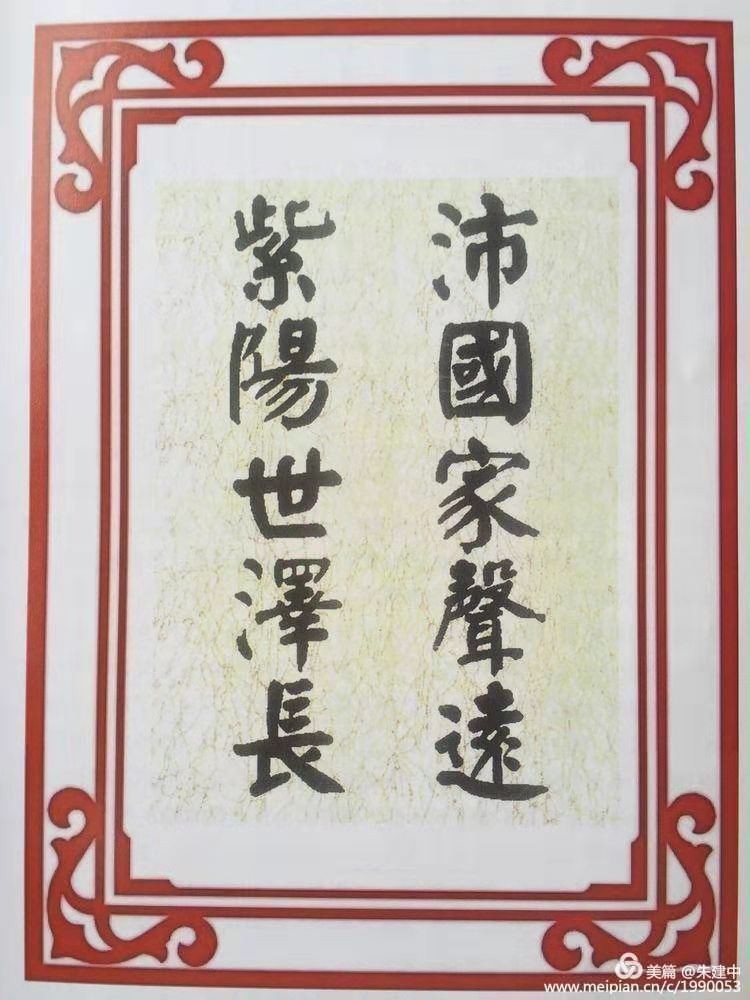 沛國家聲遠
紫陽世澤長
美篇 @朱建中
www.meipian.cn/c/1990053